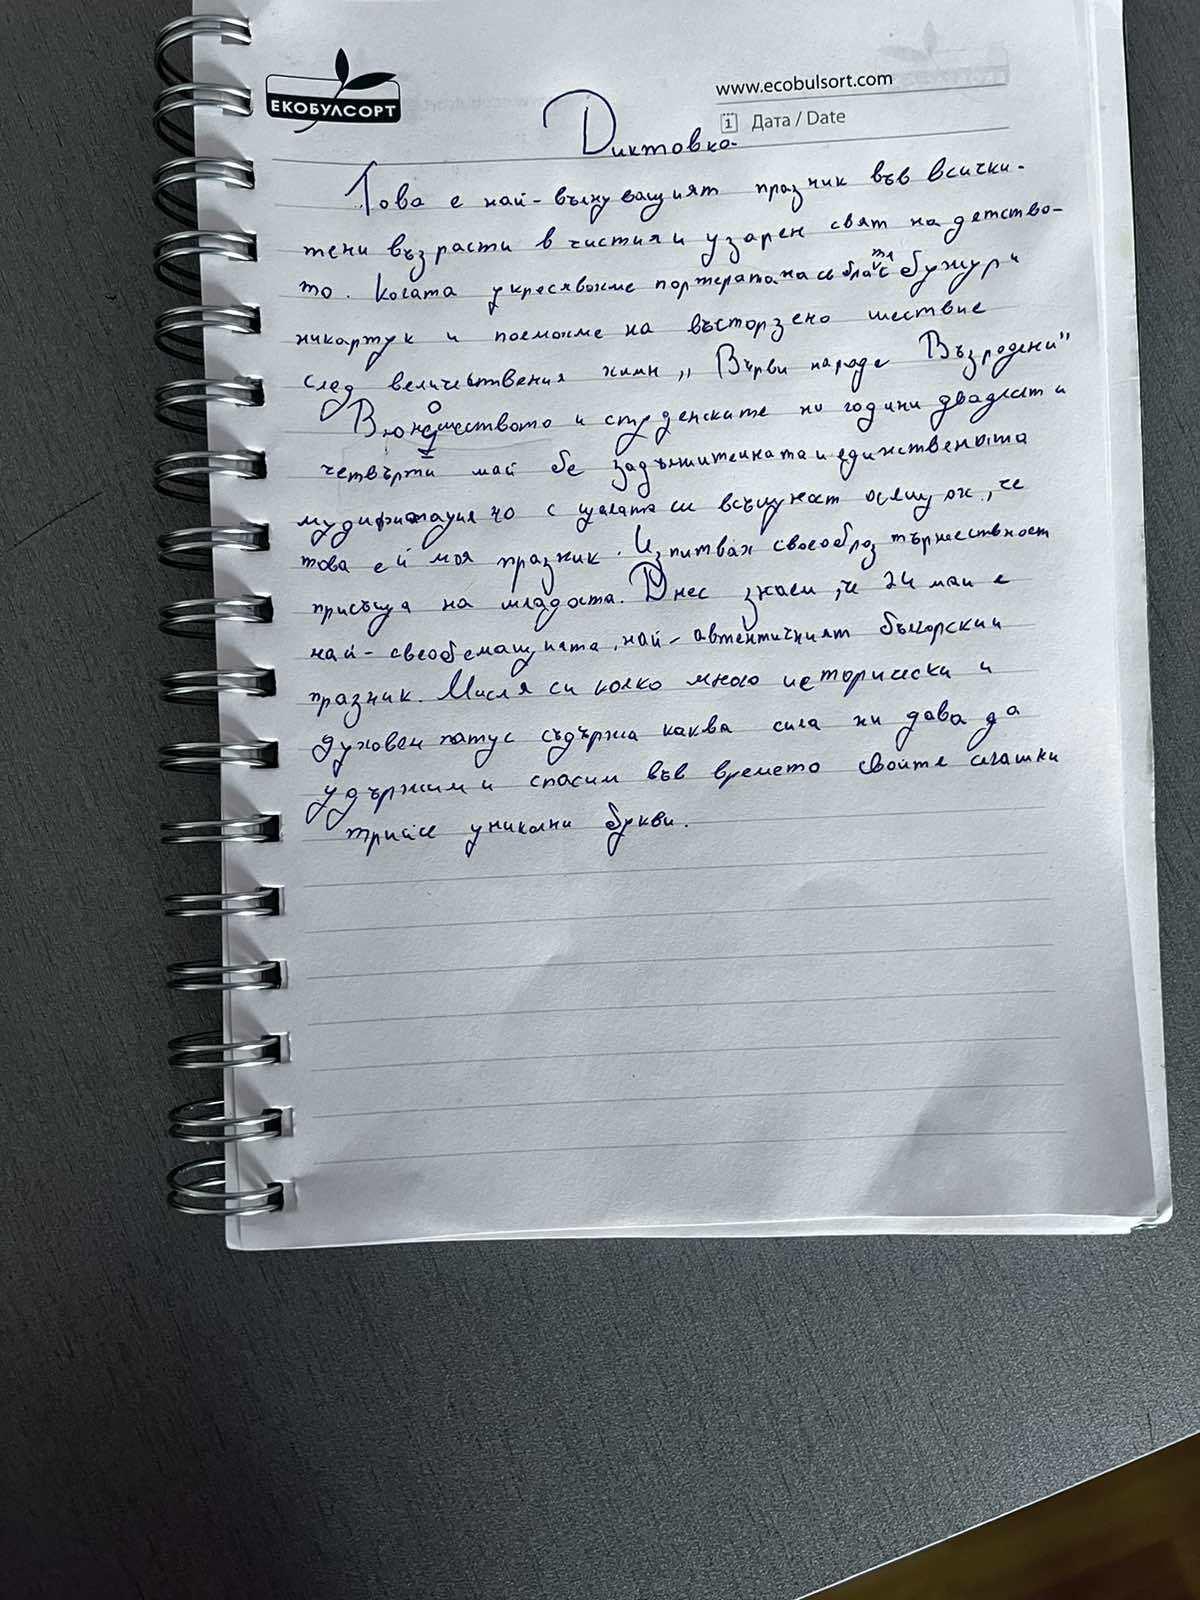 ЕКОБУЛСОРТ
www.ecobulsort.com
Дата / Date
Диктовка
Това е най-вълнуващият празник във всички-
тени възрасти в чистия и узарен свят на детство-
то. Когата украсявахме портерата на св братя с бужур и
никартук и поемахме на въсторзено шествие
след величествения химн „Върви народе Възродени"
В юношеството и студенските ни години двадест и
четвърти май бе задължителната и единствената
мудификация но с цялата си всъщност осещах, че
това е й моя празник. Изпитвах своеобраз тържественост
присъща на младоста. Днес знаем, че 24 май е
най-своебемащията, най-автентичният български
празник. Мисля си колко много исторически и
духовен патус съдържа каква сила ни дава да
удържим и спасим във времето своите сегашки
трийсе уникални букви.